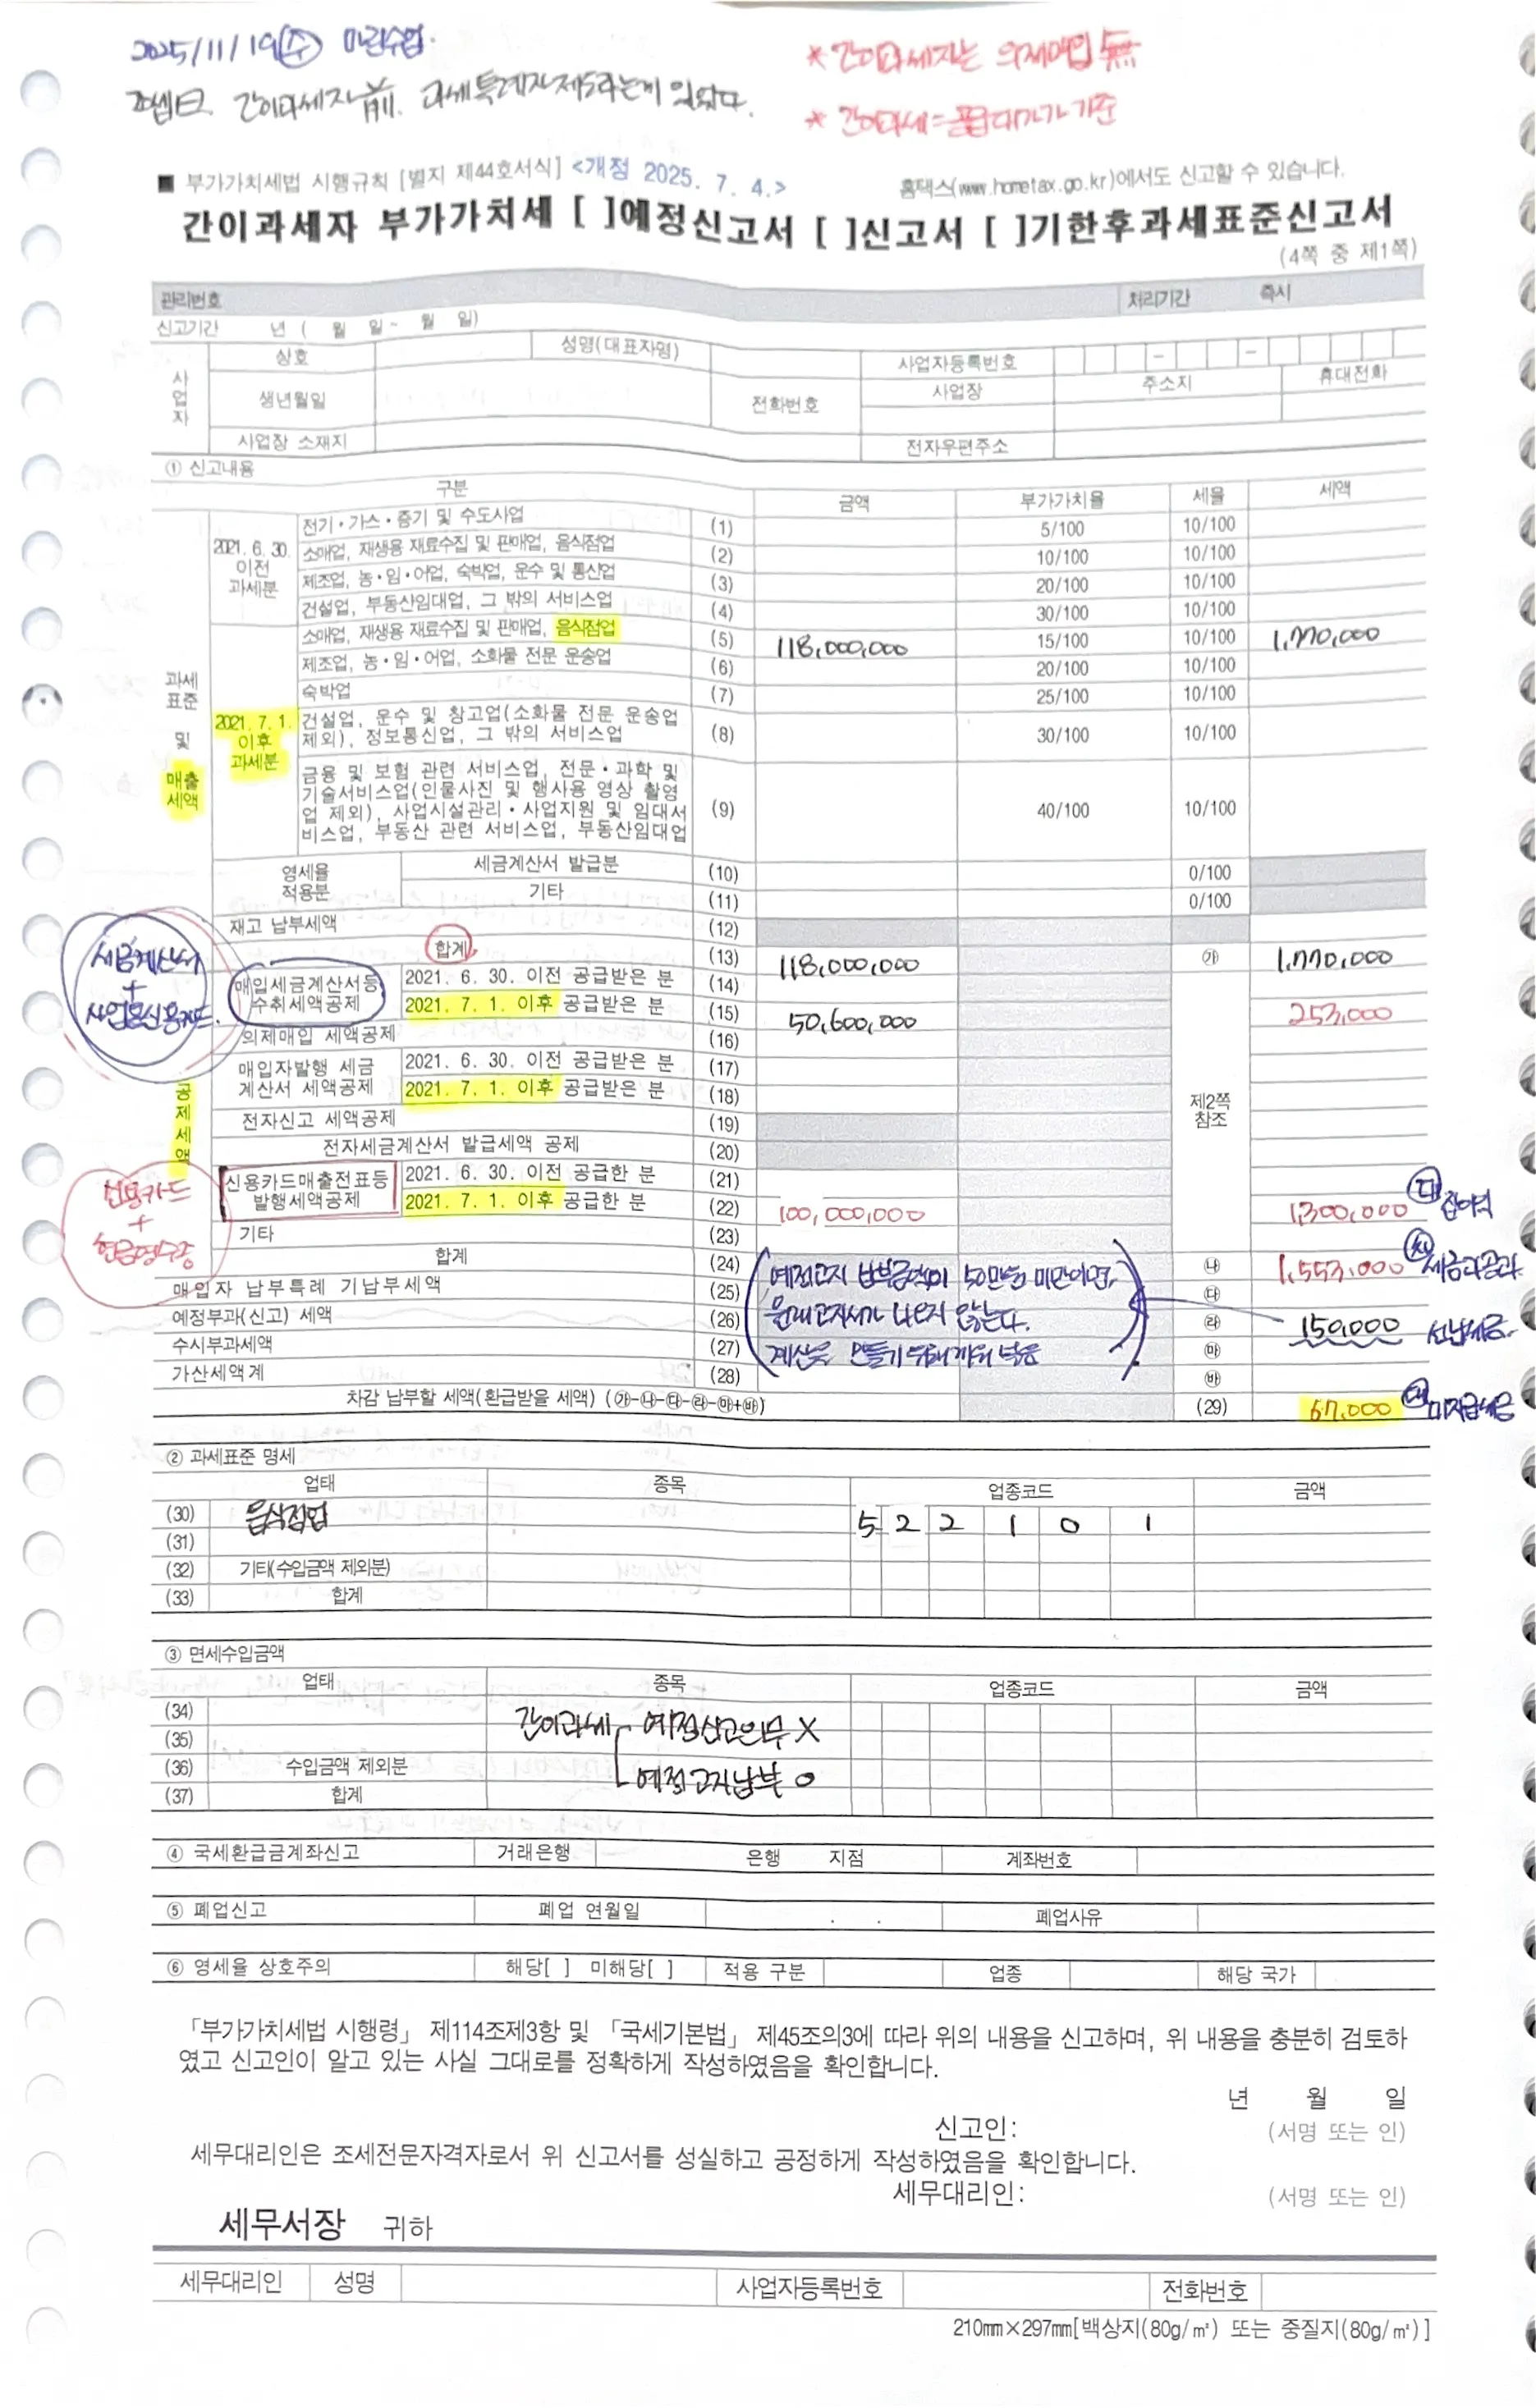 2025/11/19(수) 미린수업.
간이과세자 前. 과세특례자제도라는게 있었다.
* 간이과세자는 의제매입 無
* 간이과세=공급대가가 기준
■ 부가가치세법 시행규칙 [별지 제44호서식] <개정 2025. 7. 4.>
홈택스(www.hometax.go.kr)에서도 신고할 수 있습니다.
간이과세자 부가가치세 [ ]예정신고서 [ ]신고서 [ ]기한후과세표준신고서
(4쪽 중 제1쪽)
관리번호 처리기간 즉시
신고기간 년 ( 월 일 ~ 월 일)
사업자
상호 성명(대표자명) 사업자등록번호 - -
생년월일 전화번호 사업장 주소지 휴대전화
사업장 소재지 전자우편주소
① 신고내용
구분 금액 부가가치율 세율 세액
과세표준 및 매출세액
2021. 6. 30. 이전 과세분
전기·가스·증기 및 수도사업 (1) 5/100 10/100
소매업, 재생용 재료수집 및 판매업, 음식점업 (2) 10/100 10/100
제조업, 농·임·어업, 숙박업, 운수 및 통신업 (3) 20/100 10/100
건설업, 부동산임대업, 그 밖의 서비스업 (4) 30/100 10/100
2021. 7. 1. 이후 과세분
소매업, 재생용 재료수집 및 판매업, 음식점업 (5) 118,000,000 15/100 10/100 1,770,000
제조업, 농·임·어업, 소화물 전문 운송업 (6) 20/100 10/100
숙박업 (7) 25/100 10/100
건설업, 운수 및 창고업(소화물 전문 운송업
제외), 정보통신업, 그 밖의 서비스업 (8) 30/100 10/100
금융 및 보험 관련 서비스업, 전문·과학 및
기술서비스업(인물사진 및 행사용 영상 촬영
업 제외), 사업시설관리·사업지원 및 임대서
비스업, 부동산 관련 서비스업, 부동산임대업 (9) 40/100 10/100
영세율 적용분
세금계산서 발급분 (10) 0/100
기타 (11) 0/100
재고 납부세액 (12)
합계 (13) 118,000,000 ㉮ 1,770,000
세금계산서
+
사업용신용카드.
공제세액
매입세금계산서등 수취세액공제
2021. 6. 30. 이전 공급받은 분 (14)
2021. 7. 1. 이후 공급받은 분 (15) 50,600,000 253,000
의제매입 세액공제 (16)
매입자발행 세금계산서 세액공제
2021. 6. 30. 이전 공급받은 분 (17)
2021. 7. 1. 이후 공급받은 분 (18)
제2쪽 참조
전자신고 세액공제 (19)
전자세금계산서 발급세액 공제 (20)
신용카드
+
현금영수증
신용카드매출전표등 발행세액공제
2021. 6. 30. 이전 공급한 분 (21)
2021. 7. 1. 이후 공급한 분 (22) 100,000,000 1,300,000 대 잡이익
기타 (23)
합계 (24) ㉯ 1,553,000 차 세금과공과
매입자 납부특례 기납부세액 (25) ㉰
예정부과(신고) 세액 (26) ㉱ 150,000 선납세금
수시부과세액 (27) ㉲
가산세액계 (28) ㉳
(예정고지 납부금액이 50만원 미만이면.
원래 고지서가 나오지 않는다.
계산을 만들기 위해 끼워 넣음)
차감 납부할 세액(환급받을 세액) (㉮-㉯-㉰-㉱-㉲+㉳) (29) 67,000 대 미지급세금
② 과세표준 명세
업태 종목 업종코드 금액
(30) 음식점업 5 2 2 1 0 1
(31)
(32) 기타(수입금액 제외분)
(33) 합계
③ 면세수입금액
업태 종목 업종코드 금액
(34)
(35)
(36) 수입금액 제외분
(37) 합계
간이과세 예정신고의무 X
예정고지납부 O
④ 국세환급금계좌신고 거래은행 은행 지점 계좌번호
⑤ 폐업신고 폐업 연월일 . . 폐업사유
⑥ 영세율 상호주의 해당[ ] 미해당[ ] 적용 구분 업종 해당 국가
「부가가치세법 시행령」 제114조제3항 및 「국세기본법」 제45조의3에 따라 위의 내용을 신고하며, 위 내용을 충분히 검토하
였고 신고인이 알고 있는 사실 그대로를 정확하게 작성하였음을 확인합니다.
년 월 일
신고인: (서명 또는 인)
세무대리인은 조세전문자격자로서 위 신고서를 성실하고 공정하게 작성하였음을 확인합니다.
세무대리인: (서명 또는 인)
세무서장 귀하
세무대리인 성명 사업자등록번호 전화번호
210mm×297mm[백상지(80g/㎡) 또는 중질지(80g/㎡)]